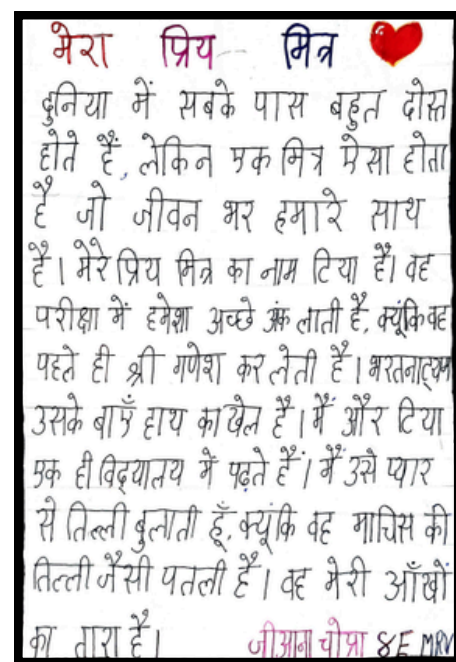 मेरा प्रिय मित्र
दुनिया में सबके पास बहुत दोस्त
होते हैं, लेकिन एक मित्र ऐसा होता
है जो जीवन भर हमारे साथ
है। मेरे प्रिय मित्र का नाम टिया है। वह
परीक्षा में हमेशा अच्छे अंक लाती है, क्यूंकि वह
पहले ही श्री गणेश कर लेती है। भरतनाट्यम
उसके बाएँ हाथ का खेल है। मैं और टिया
एक ही विद्यालय में पढ़ते हैं। मैं उसे प्यार
से तिल्ली बुलाती हूँ, क्यूंकि वह माचिस की
तिल्ली जैसी पतली है। वह मेरी आँखों
का तारा है। जीआना चोप्रा 8E MRV